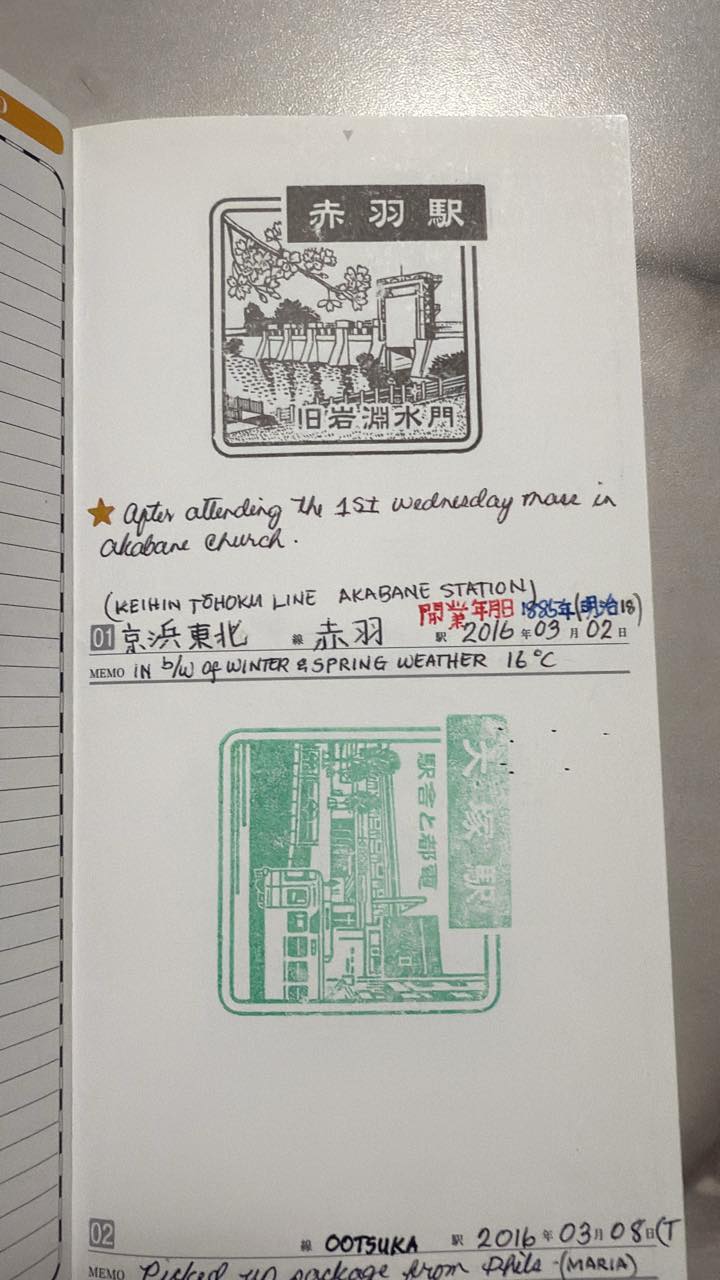 赤羽駅
旧岩淵水門
After attending the 1st wednesday mass in
akabane church.
(KEIHIN TŌHOKU LINE AKABANE STATION)
開業年月日 1885年(明治18)
01 京浜東北 線 赤羽 駅 2016年03月02日
MEMO IN b/w of WINTER & SPRING WEATHER 16°C
大塚駅
駅舎と都電
02 線 OOTSUKA 駅 2016年03月08日(T
MEMO Picked up package from Phils - (MARIA)